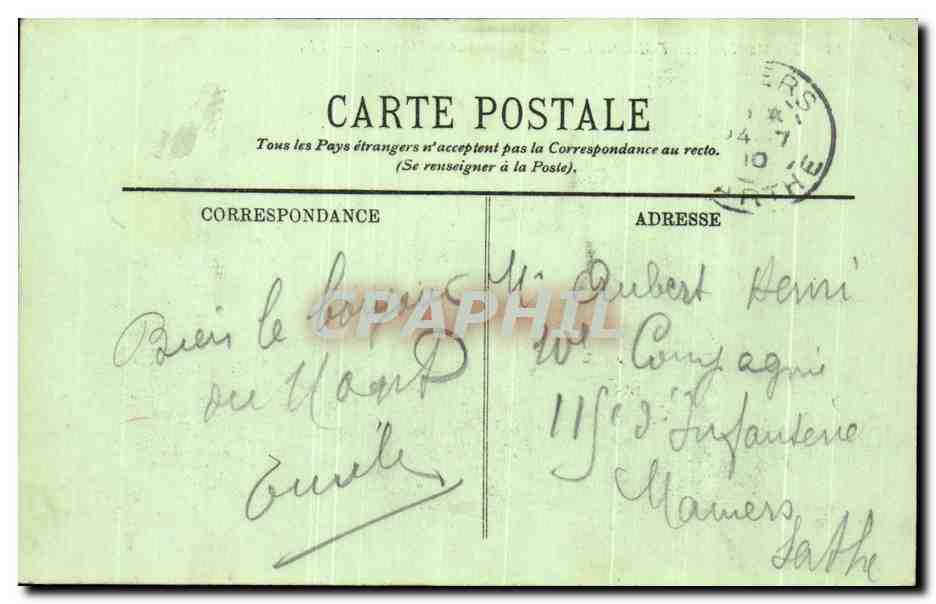 CARTE POSTALE
Tous les Pays étrangers n'acceptent pas la Correspondance au recto.
(Se renseigner à la Poste).
ERS
4 7
10
RTHE
CORRESPONDANCE
ADRESSE
Bien le bonjour
du
Mr Aubert Henri
10e Compagnie
115e d'Infanterie
Mamers
Sarthe
CPAPHIL